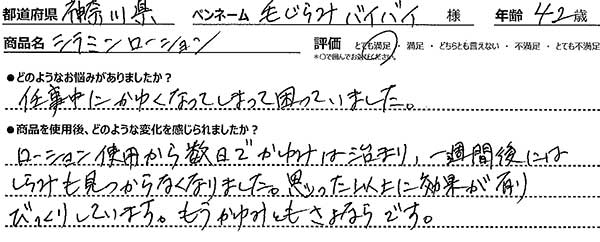 都道府県 神奈川県 ペンネーム 毛じらみバイバイ 様 年齢 42 歳
商品名 シラミンローション 評価 とても満足・満足・どちらとも言えない・不満足・とても不満足
*○で囲んでお答えください。
●どのようなお悩みがありましたか?
仕事中にかゆくなってしまって困っていました。
●商品を使用後、どのような変化を感じられましたか?
ローション使用から数日でかゆみは治まり、一週間後には
しらみも見つからなくなりました。思った以上に効果が有り
びっくりしています。もうかゆみともさよならです。